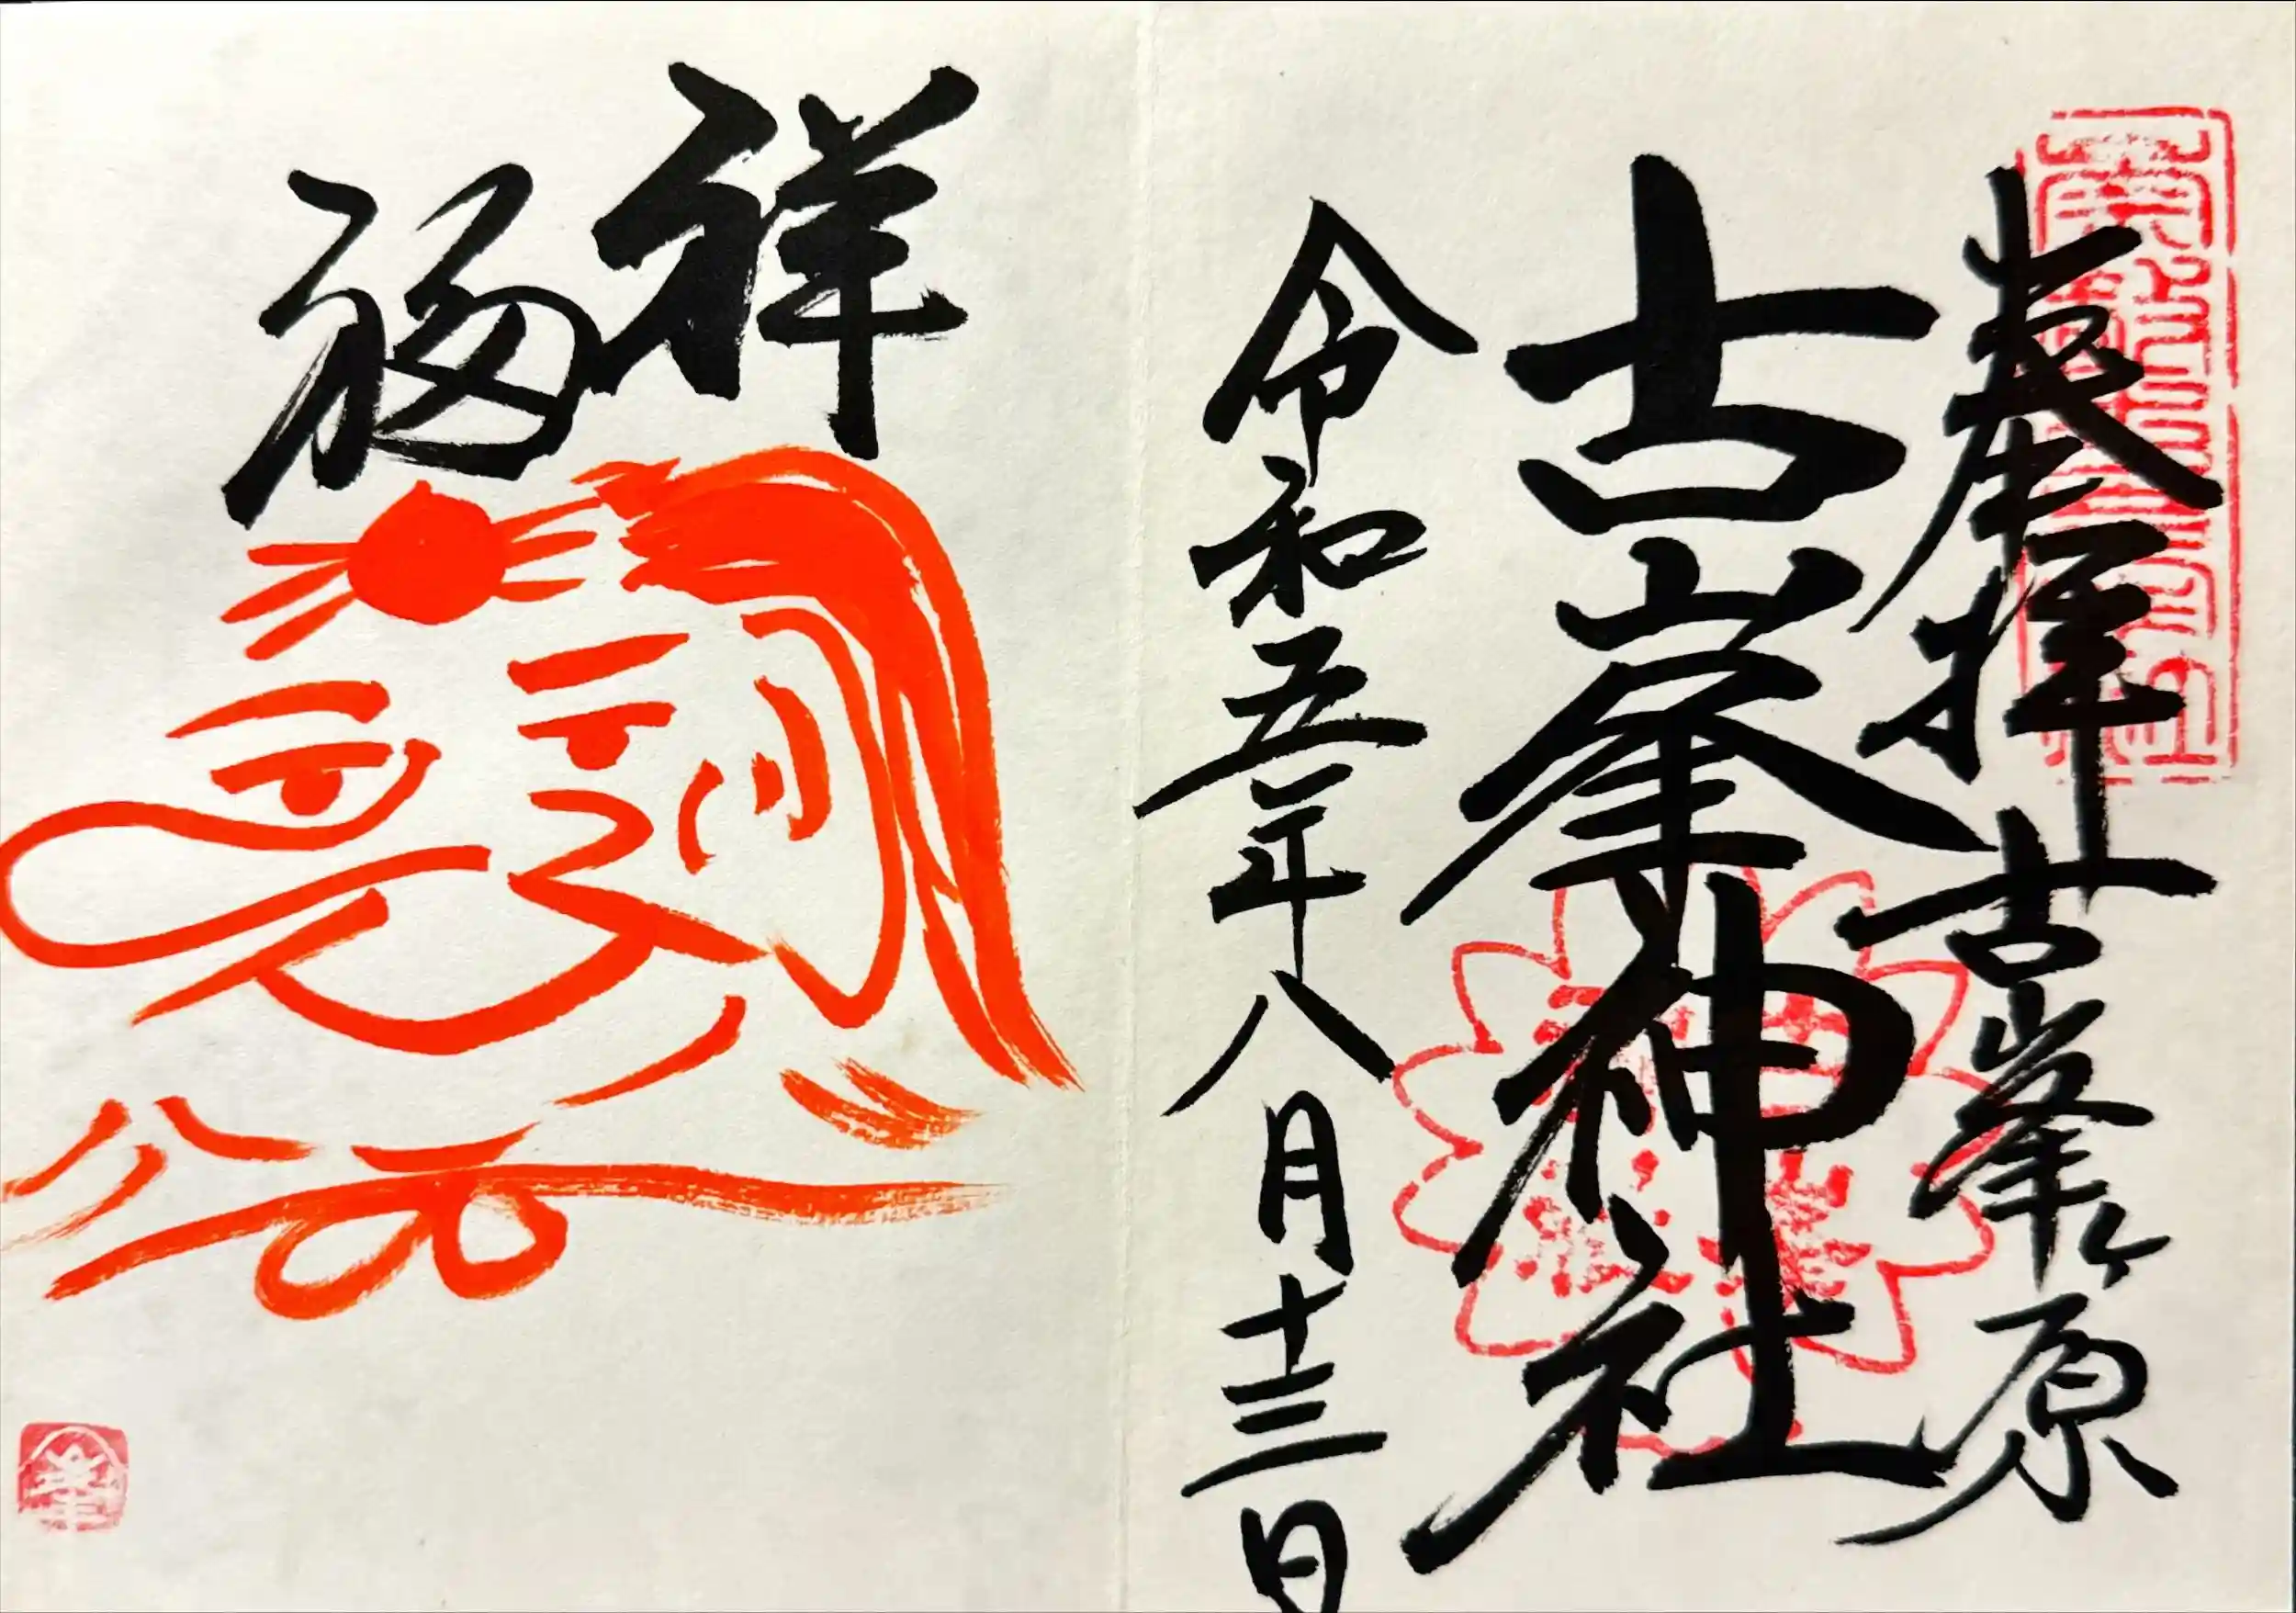 奉拝 古峯ヶ原
古峯神社
令和五年八月十三日
祥福